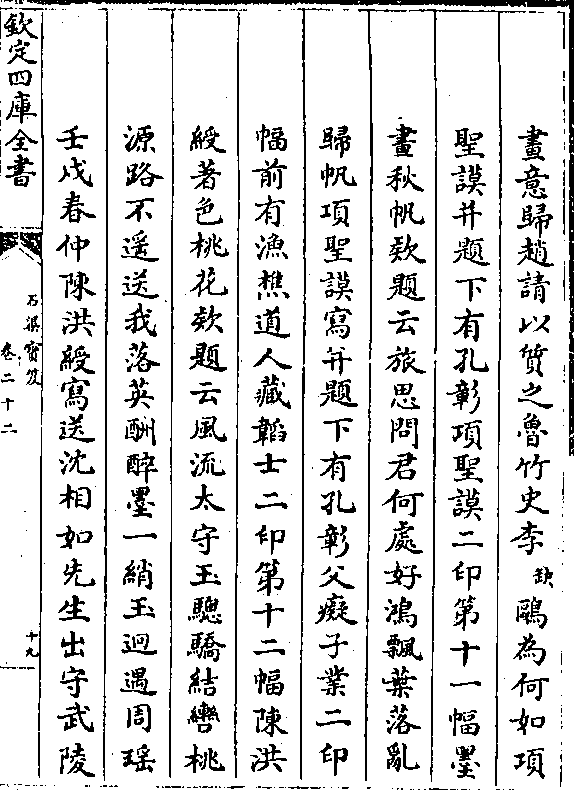 畫意歸趙請以質之魯竹史李缺鷗為何如項
聖謨并題下有孔彰項聖謨二印第十一幅墨
畫秋帆欵題云旅思問君何處好鴻飄葉落亂
歸帆項聖謨寫并題下有孔彰父癡子業二印
幅前有漁樵道人藏韜士二印第十二幅陳洪
綬著色桃花欵題云風流太守玉驄驕結轡桃
源路不遥送我落英酬醉墨一綃玉迥遇周瑶
壬戌春仲陳洪綬寫送沈相如先生出守武陵
欽定四庫全書
石渠寳笈
卷二十二
十九